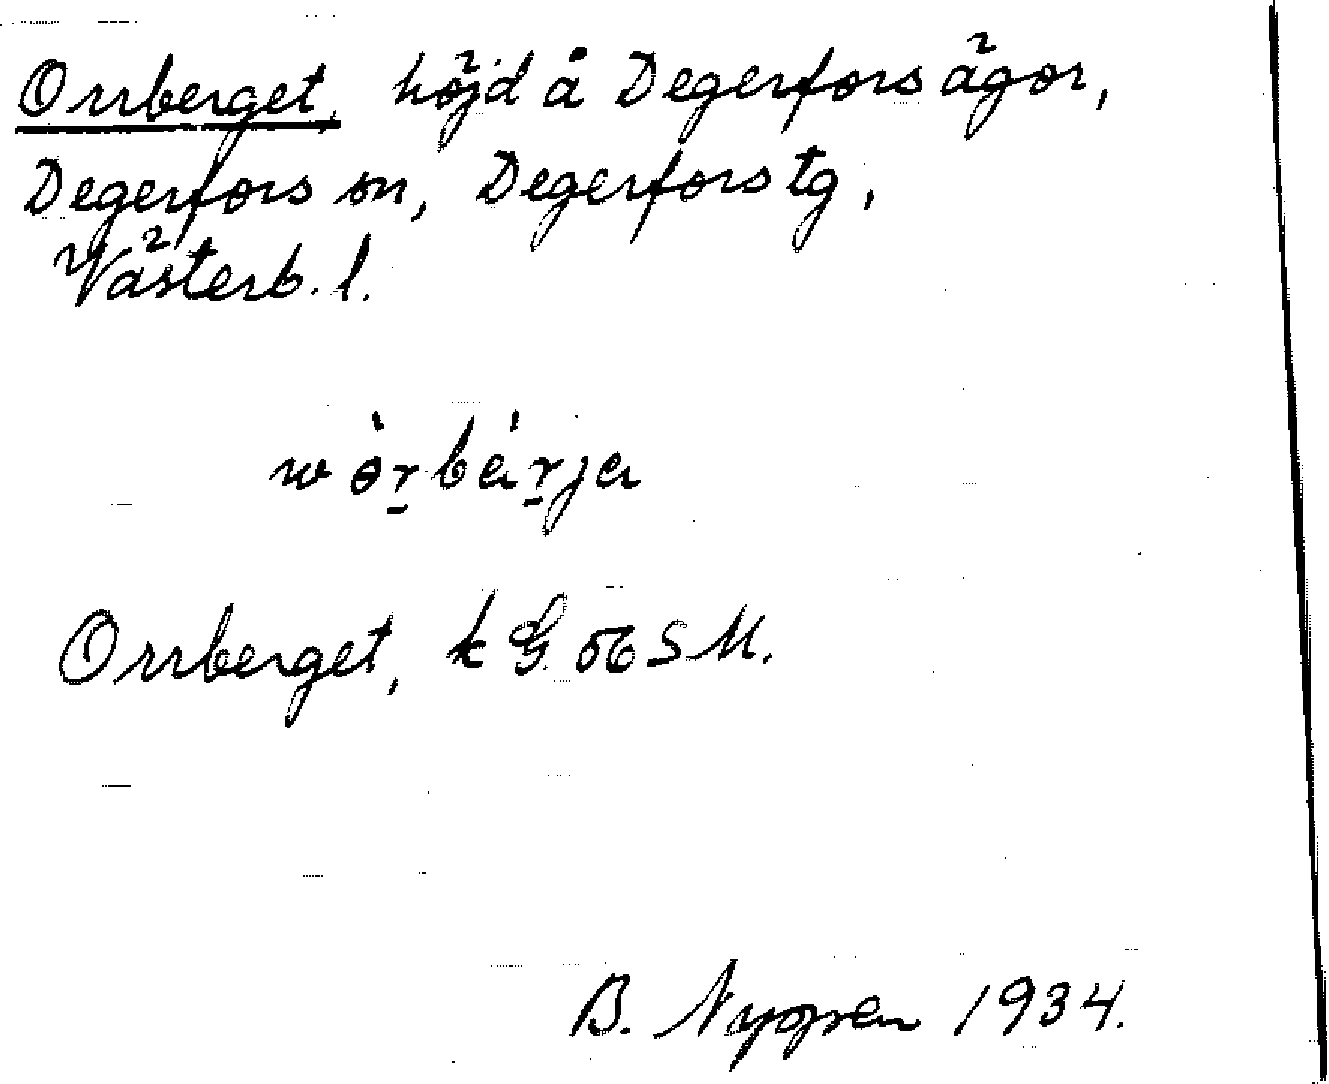 Orrberget, höjd å Degerfors ägor,
Degerfors sn, Degerfors tg,
Västerb. l.
w ɵ̀r̠bár̠ja
Orrberget, k G 56 S M.
B. Nyopren 1934.